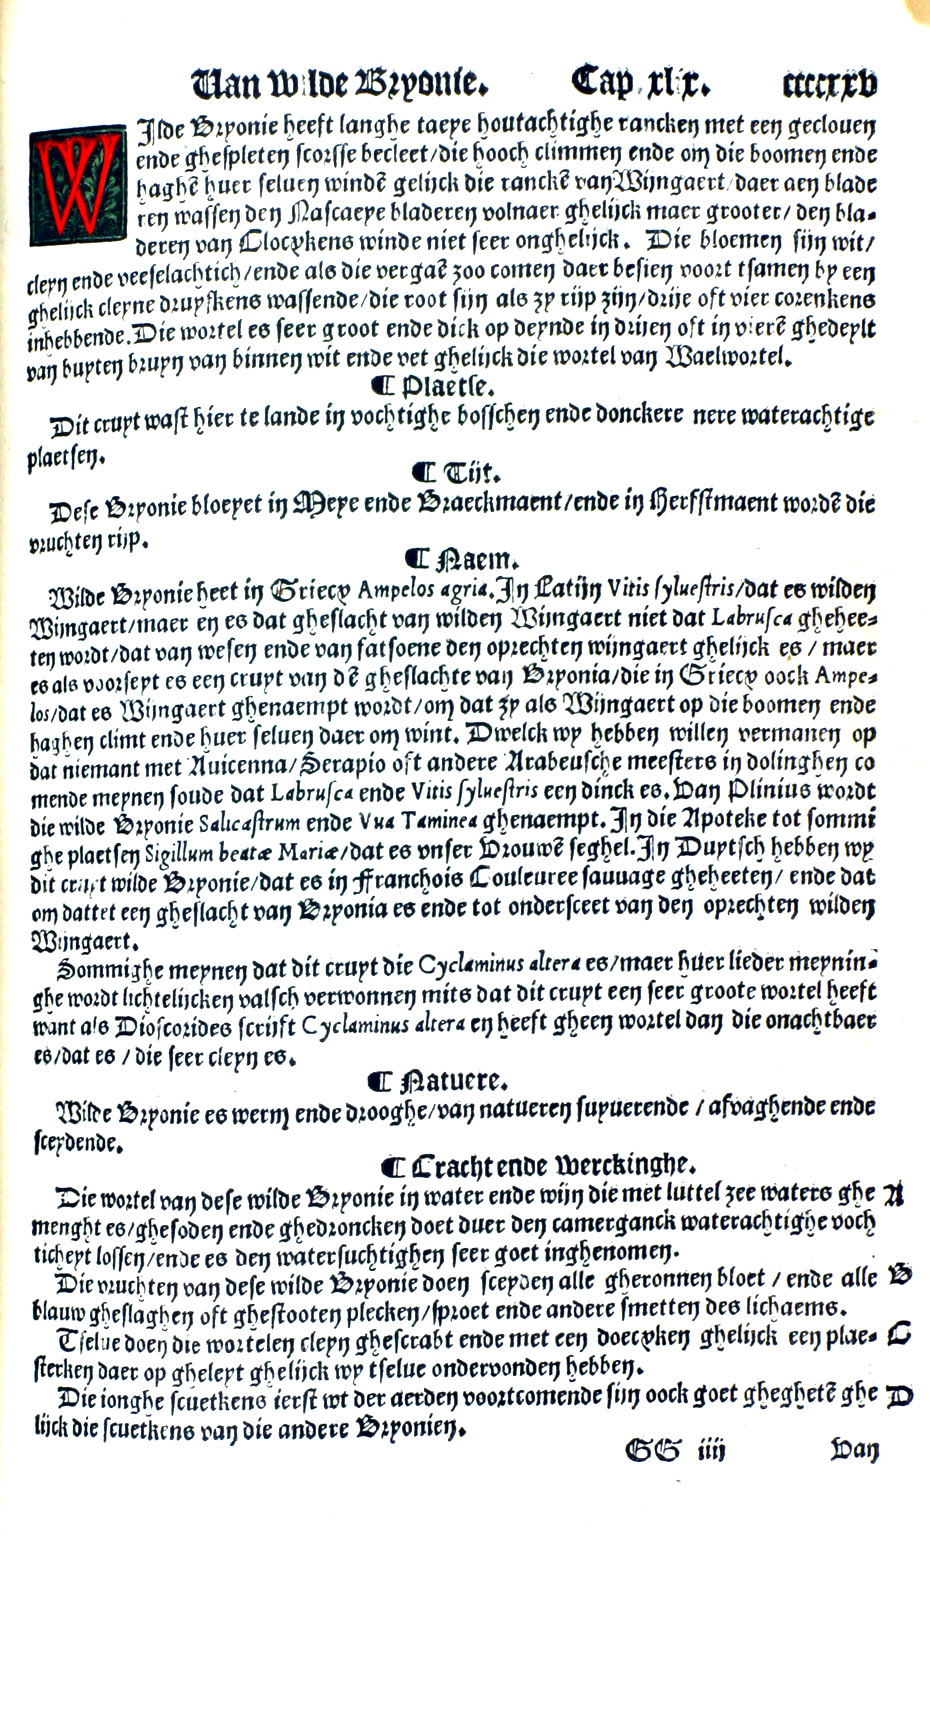 Van Wilde Bryonie. Cap. xlix. ccccxxv
WIlde Bryonie heeft langhe taeye houtachtighe rancken met een geclouen
ende ghespleten scorsse becleet/die hooch climmen ende om die boomen ende
haghē huer seluen windē gelijck die ranckē van Wijngaert/daer aen blade
ren wassen den Nascaepe bladeren volnaer ghelijck maer grooter/ den bla⸗
deren van Clocxkens winde niet seer onghelijck. Die bloemen sijn wit/
cleyn ende veeselachtich/ende als die vergaē zoo comen daer besien voort tsamen by een
ghelijck cleyne druyfkens wassende/die root sijn als zy rijp zijn/drije oft vier corenkens
inhebbende. Die wortel es seer groot ende dick op deynde in drijen oft in vierē ghedeylt
van buyten bruyn van binnen wit ende vet ghelijck die wortel van Waelwortel.
¶ Plaetse.
Dit cruyt wast hier te lande in vochtighe bosschen ende donckere nere waterachtige
plaetsen.
¶ Tijt.
Dese Bryonie bloeyet in Meye ende Braeckmaent/ende in Herfstmaent wordē die
vruchten rijp.
¶ Naem.
Wilde Bryonie heet in Griecx Ampelos agria. In Latijn Vitis syluestris/dat es wilden
Wijngaert/maer en es dat gheslacht van wilden Wijngaert niet dat Labrusca ghehee⸗
ten wordt/dat van wesen ende van fatsoene den oprechten wijngaert ghelijck es / maer
es als voorseyt es een cruyt van dē gheslachte van Bryonia/die in Griecx oock Ampe⸗
los/dat es Wijngaert ghenaempt wordt/om dat zy als Wijngaert op die boomen ende
haghen climt ende huer seluen daer om wint. Dwelck wy hebben willen vermanen op
dat niemant met Auicenna/Serapio oft andere Arabeusche meesters in dolinghen co
mende meynen soude dat Labrusca ende Vitis syluestris een dinck es. Van Plinius wordt
die wilde Bryonie Salicastrum ende Vua Taminea ghenaempt. In die Apoteke tot sommi
ghe plaetsen Sigillum beatæ Mariæ/dat es vnser Vrouwē seghel. In Duytsch hebben wy
dit cruyt wilde Bryonie/dat es in Franchois Couleuree sauuage gheheeten/ ende dat
om dattet een gheslacht van Bryonia es ende tot ondersceet van den oprechten wilden
Wijngaert.
Sommighe meynen dat dit cruyt die Cyclaminus altera es/maer huer lieder meynin⸗
ghe wordt lichtelijcken valsch verwonnen mits dat dit cruyt een seer groote wortel heeft
want als Dioscorides scrijft Cyclaminus altera en heeft gheen wortel dan die onachtbaer
es/dat es / die seer cleyn es.
¶ Natuere.
Wilde Bryonie es werm ende drooghe/van natueren suyuerende / afvaghende ende
sceydende.
¶ Cracht ende Werckinghe.
Die wortel van dese wilde Bryonie in water ende wijn die met luttel zee waters ghe A
menght es/ghesoden ende ghedroncken doet duer den camerganck waterachtighe voch
ticheyt lossen/ende es den watersuchtighen seer goet inghenomen.
Die vruchten van dese wilde Bryonie doen sceyden alle gheronnen bloet / ende alle B
blauw gheslaghen oft ghestooten plecken/sproet ende andere smetten des lichaems.
Tselue doen die wortelen cleyn ghescrabt ende met een doecxken ghelijck een plae⸗ C
sterken daer op gheleyt ghelijck wy tselue ondervonden hebben.
Die ionghe scuetkens ierst wt der aerden voortcomende sijn oock goet gheghetē ghe D
lijck die scuetkens van die andere Bryonien.
GG iiij Van